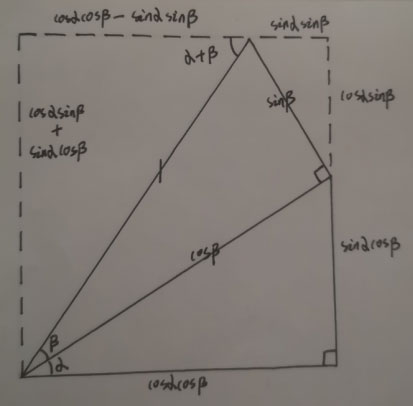 cosαcosβ - sinαsinβ
sinαsinβ
α+β
cosαsinβ
+
sinαcosβ
sinβ
cosαsinβ
1
cosβ
sinαcosβ
β
α
cosαcosβ